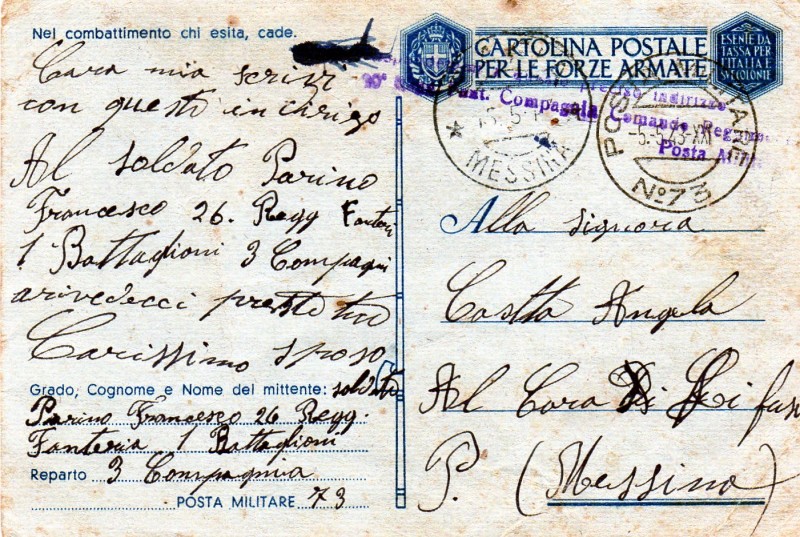 Nel combattimento chi esita, cade.
Cara mia scrivi
con questo indirigo
Al soldato Parino
Francesco 26. Regg Fanteri
1 Battaglioni 3 Compagni
arivedecci presto tuo
Carissimo sposo
Grado, Cognome e Nome del mittente: soldato
Parino Francesco 26 Regg.
Fanteria 1 Battaglioni
Reparto 3 Compagnia
POSTA MILITARE 73
CARTOLINA POSTALE
PER LE FORZE ARMATE
ESENTE DA
TASSA PER
L'ITALIA E
SUE COLONIE
preciso indirizzo
Compagnia Comando
Posta
MESSINA
-5.5.43-XXI
N° 73
Alla signora
Costta Angela
Al Cara Di
P. (Messina)